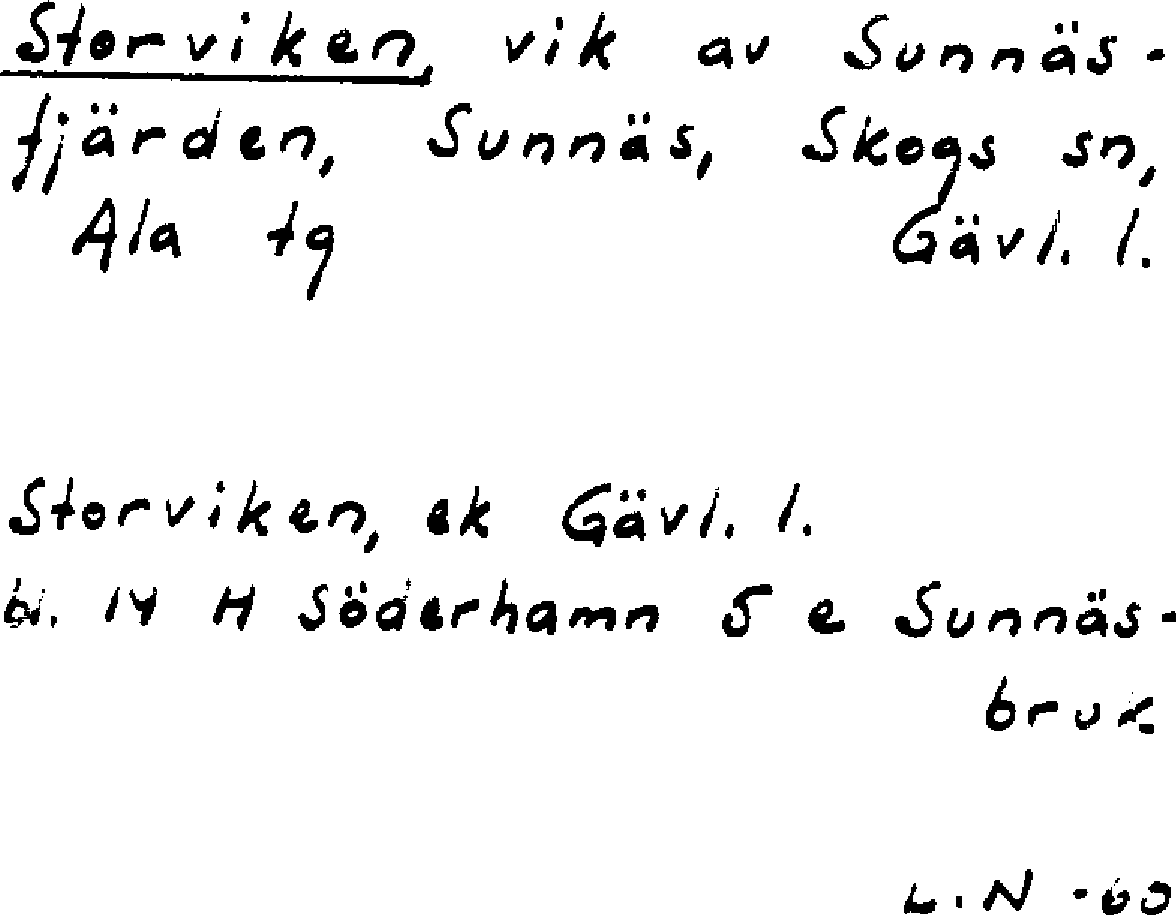 Storviken, vik av Sunnäs-
fjärden, Sunnäs, Skogs sn,
Ala tg Gävl. l.
Storviken, ek Gävl. l.
bl. 14 H Söderhamn 5 e Sunnäs-
bruk
L.N -60